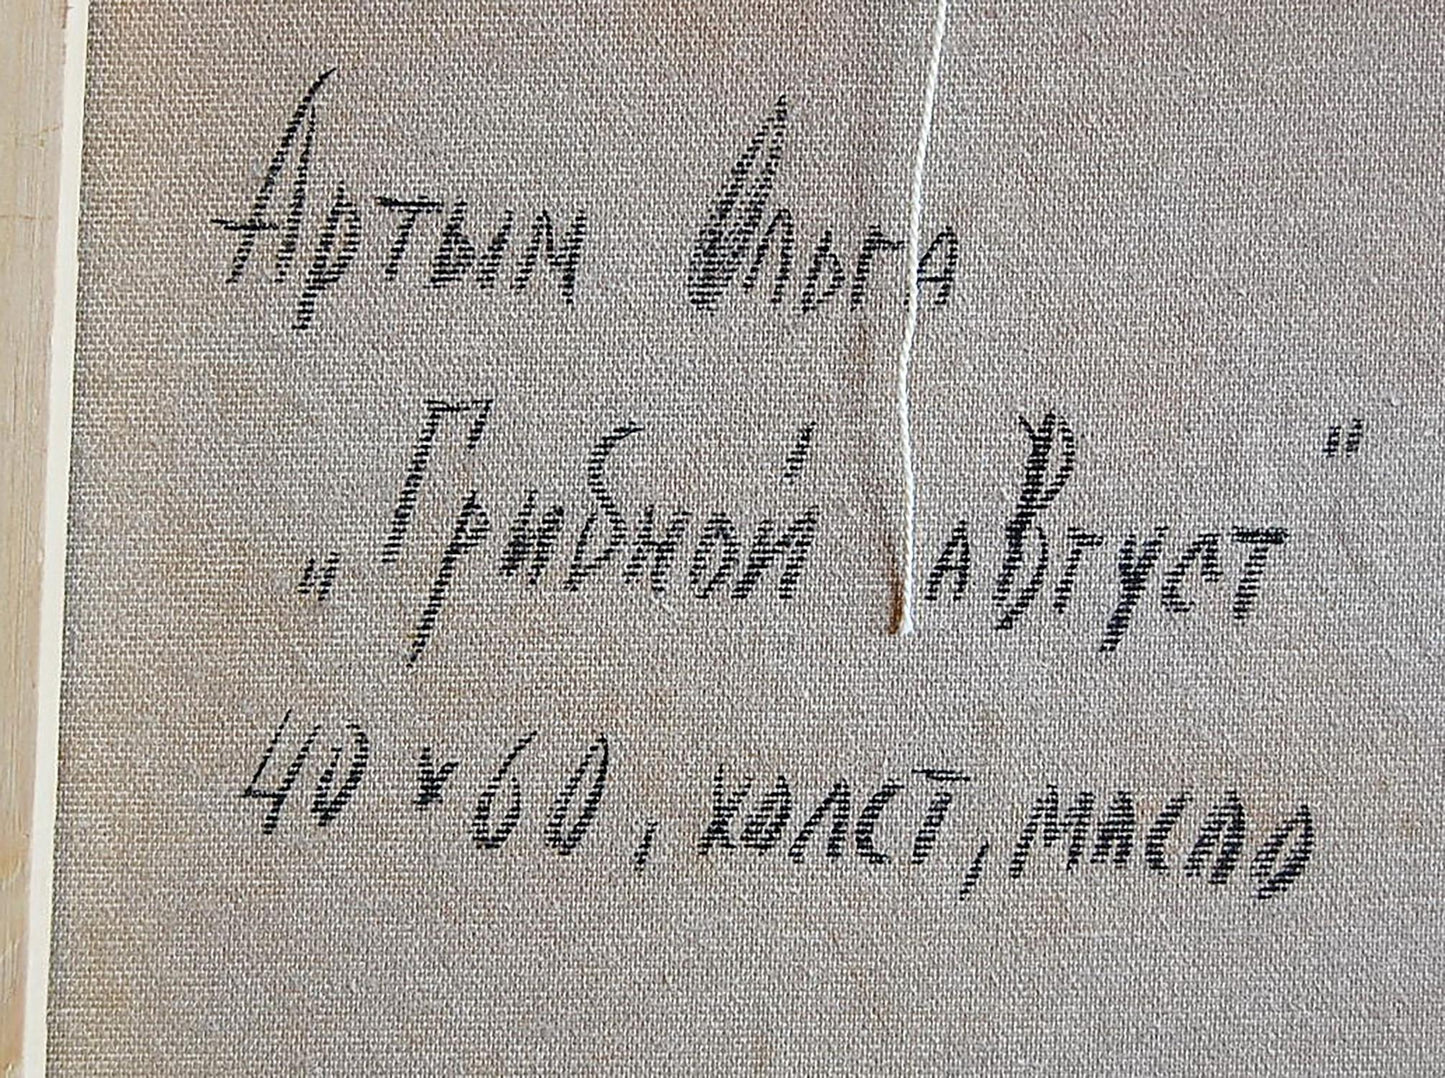 Артым Ольга
„Грибной август"
40 x 60, холст, масло